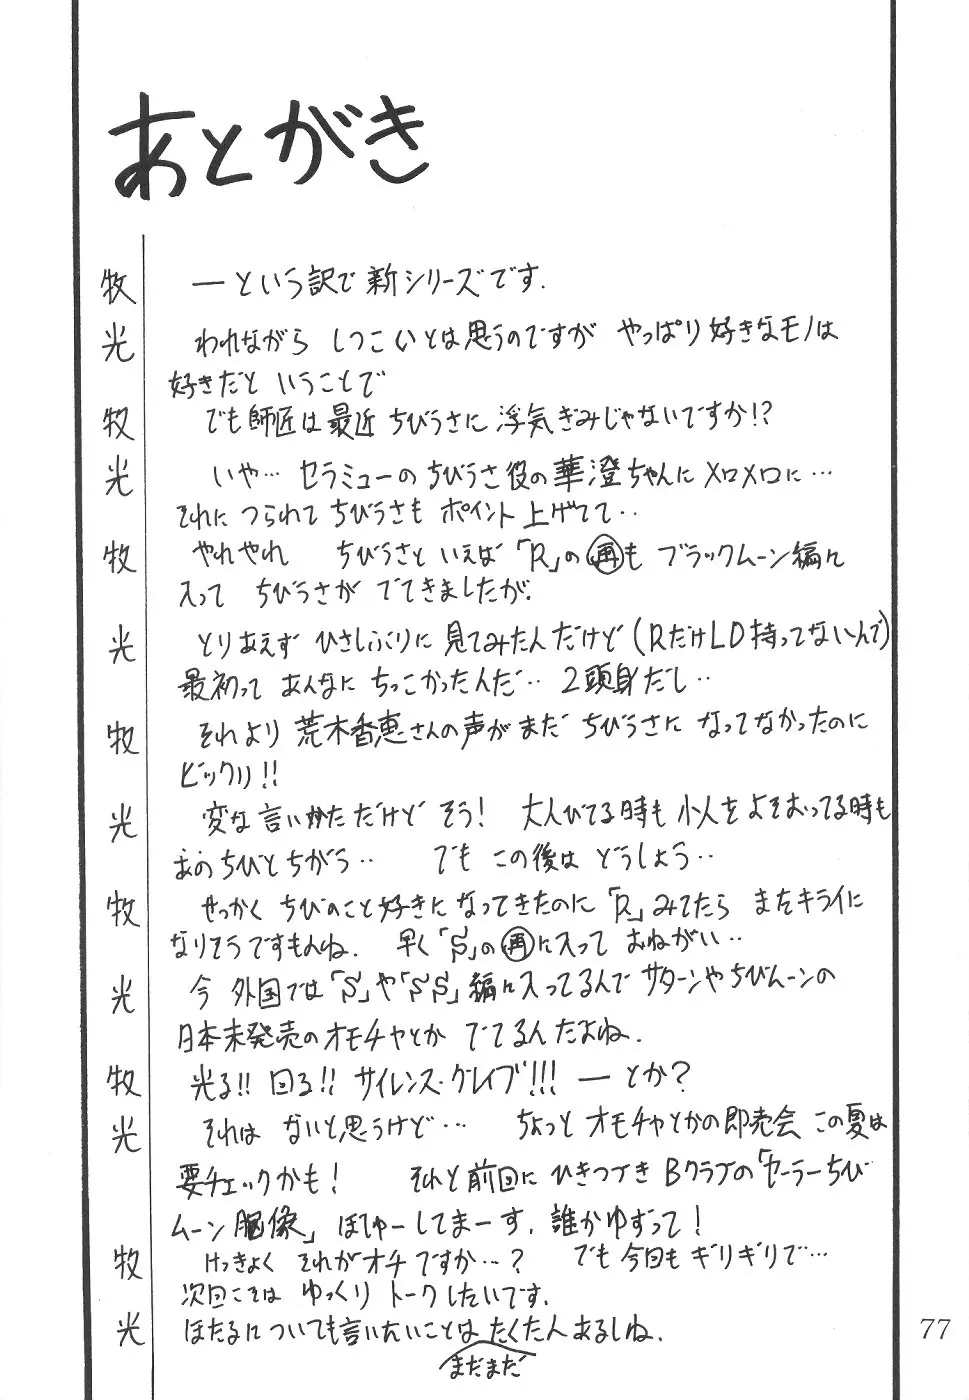 あとがき
牧 ―という訳で新シリーズです.
光 われながら しつこいとは思うのですが やっぱり好きなモノは
好きだと いうことで
牧 でも師匠は最近 ちびうさに 浮気ぎみじゃないですか!?
光 いや… セラミューのちびうさ役の華澄ちゃんにメロメロに…
それに つられて ちびうさも ポイント上げてて‥
牧 やれやれ ちびうさと いえば「R」の再も ブラックムーン編に
入って ちびうさが でてきましたが.
光 とりあえず ひさしぶりに 見てみたんだけど(RだけLD持ってないんで)
最初って あんなに ちっこかったんだ‥ 2頭身だし‥
牧 それより 荒木香恵さんの声がまだ ちびうさに なってなかったのに
ビックリ!!
光 変な言いかただけど そう! 大人びてる時も 小人をよそおってる時も
あのちびとちがう‥ でも この後は どうしよう‥
牧 せっかく ちびのこと好きになってきたのに「R」みてたら またキライに
なりそうですもんね. 早く「S」の再に入って おねがい‥
光 今 外国では「S」や「SS」編に入ってるんで サターンやちびムーンの
日本未発売のオモチャとか でてるんだよね.
牧 光る!! 回る!! サイレンス・グレイブ!!! ―とか?
光 それは ないと思うけど… ちょっと オモチャとかの即売会 この夏は
要チェックかも! それと前回に ひきつづき Bクラブの「セーラーちび
ムーン胸像」ぼしゅーしてまーす. 誰かゆずって!
牧 けっきょく それがオチですか…? でも 今回も ギリギリで…
次回こそは ゆっくり トークしたいです.
光 ほたるについても言いたいことは たくさんあるしね.
まだまだ
77